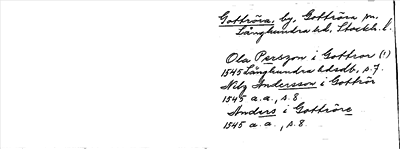 Gottröra, by, Gottröra sn.
Långhundra hd, Stockh. l.
Ola Perszon i Gottror (!)
1545 Långhundra hdsdb, s. 7.
Nilz Andersson i Gottrör
1545 a.a., s. 8
Anders i Gottröre
1545 a.a., s. 8.